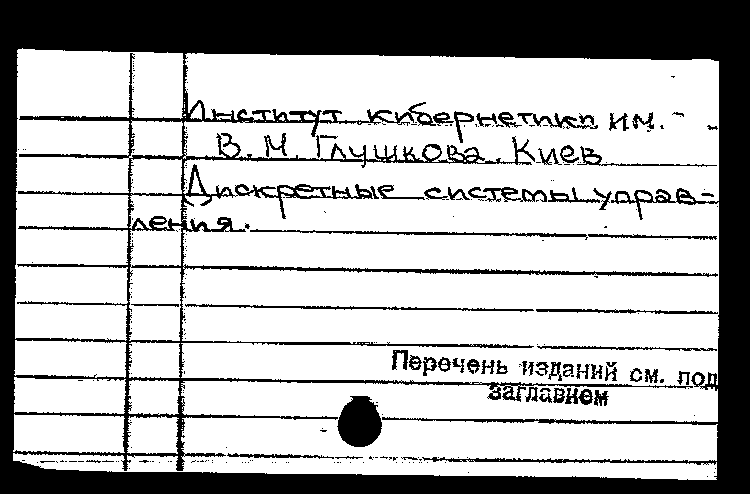 Институт кибернетики им.
В. М. Глушкова. Киев
Дискретные системы управ-
ления.
Перечень изданий см. под
заглавием